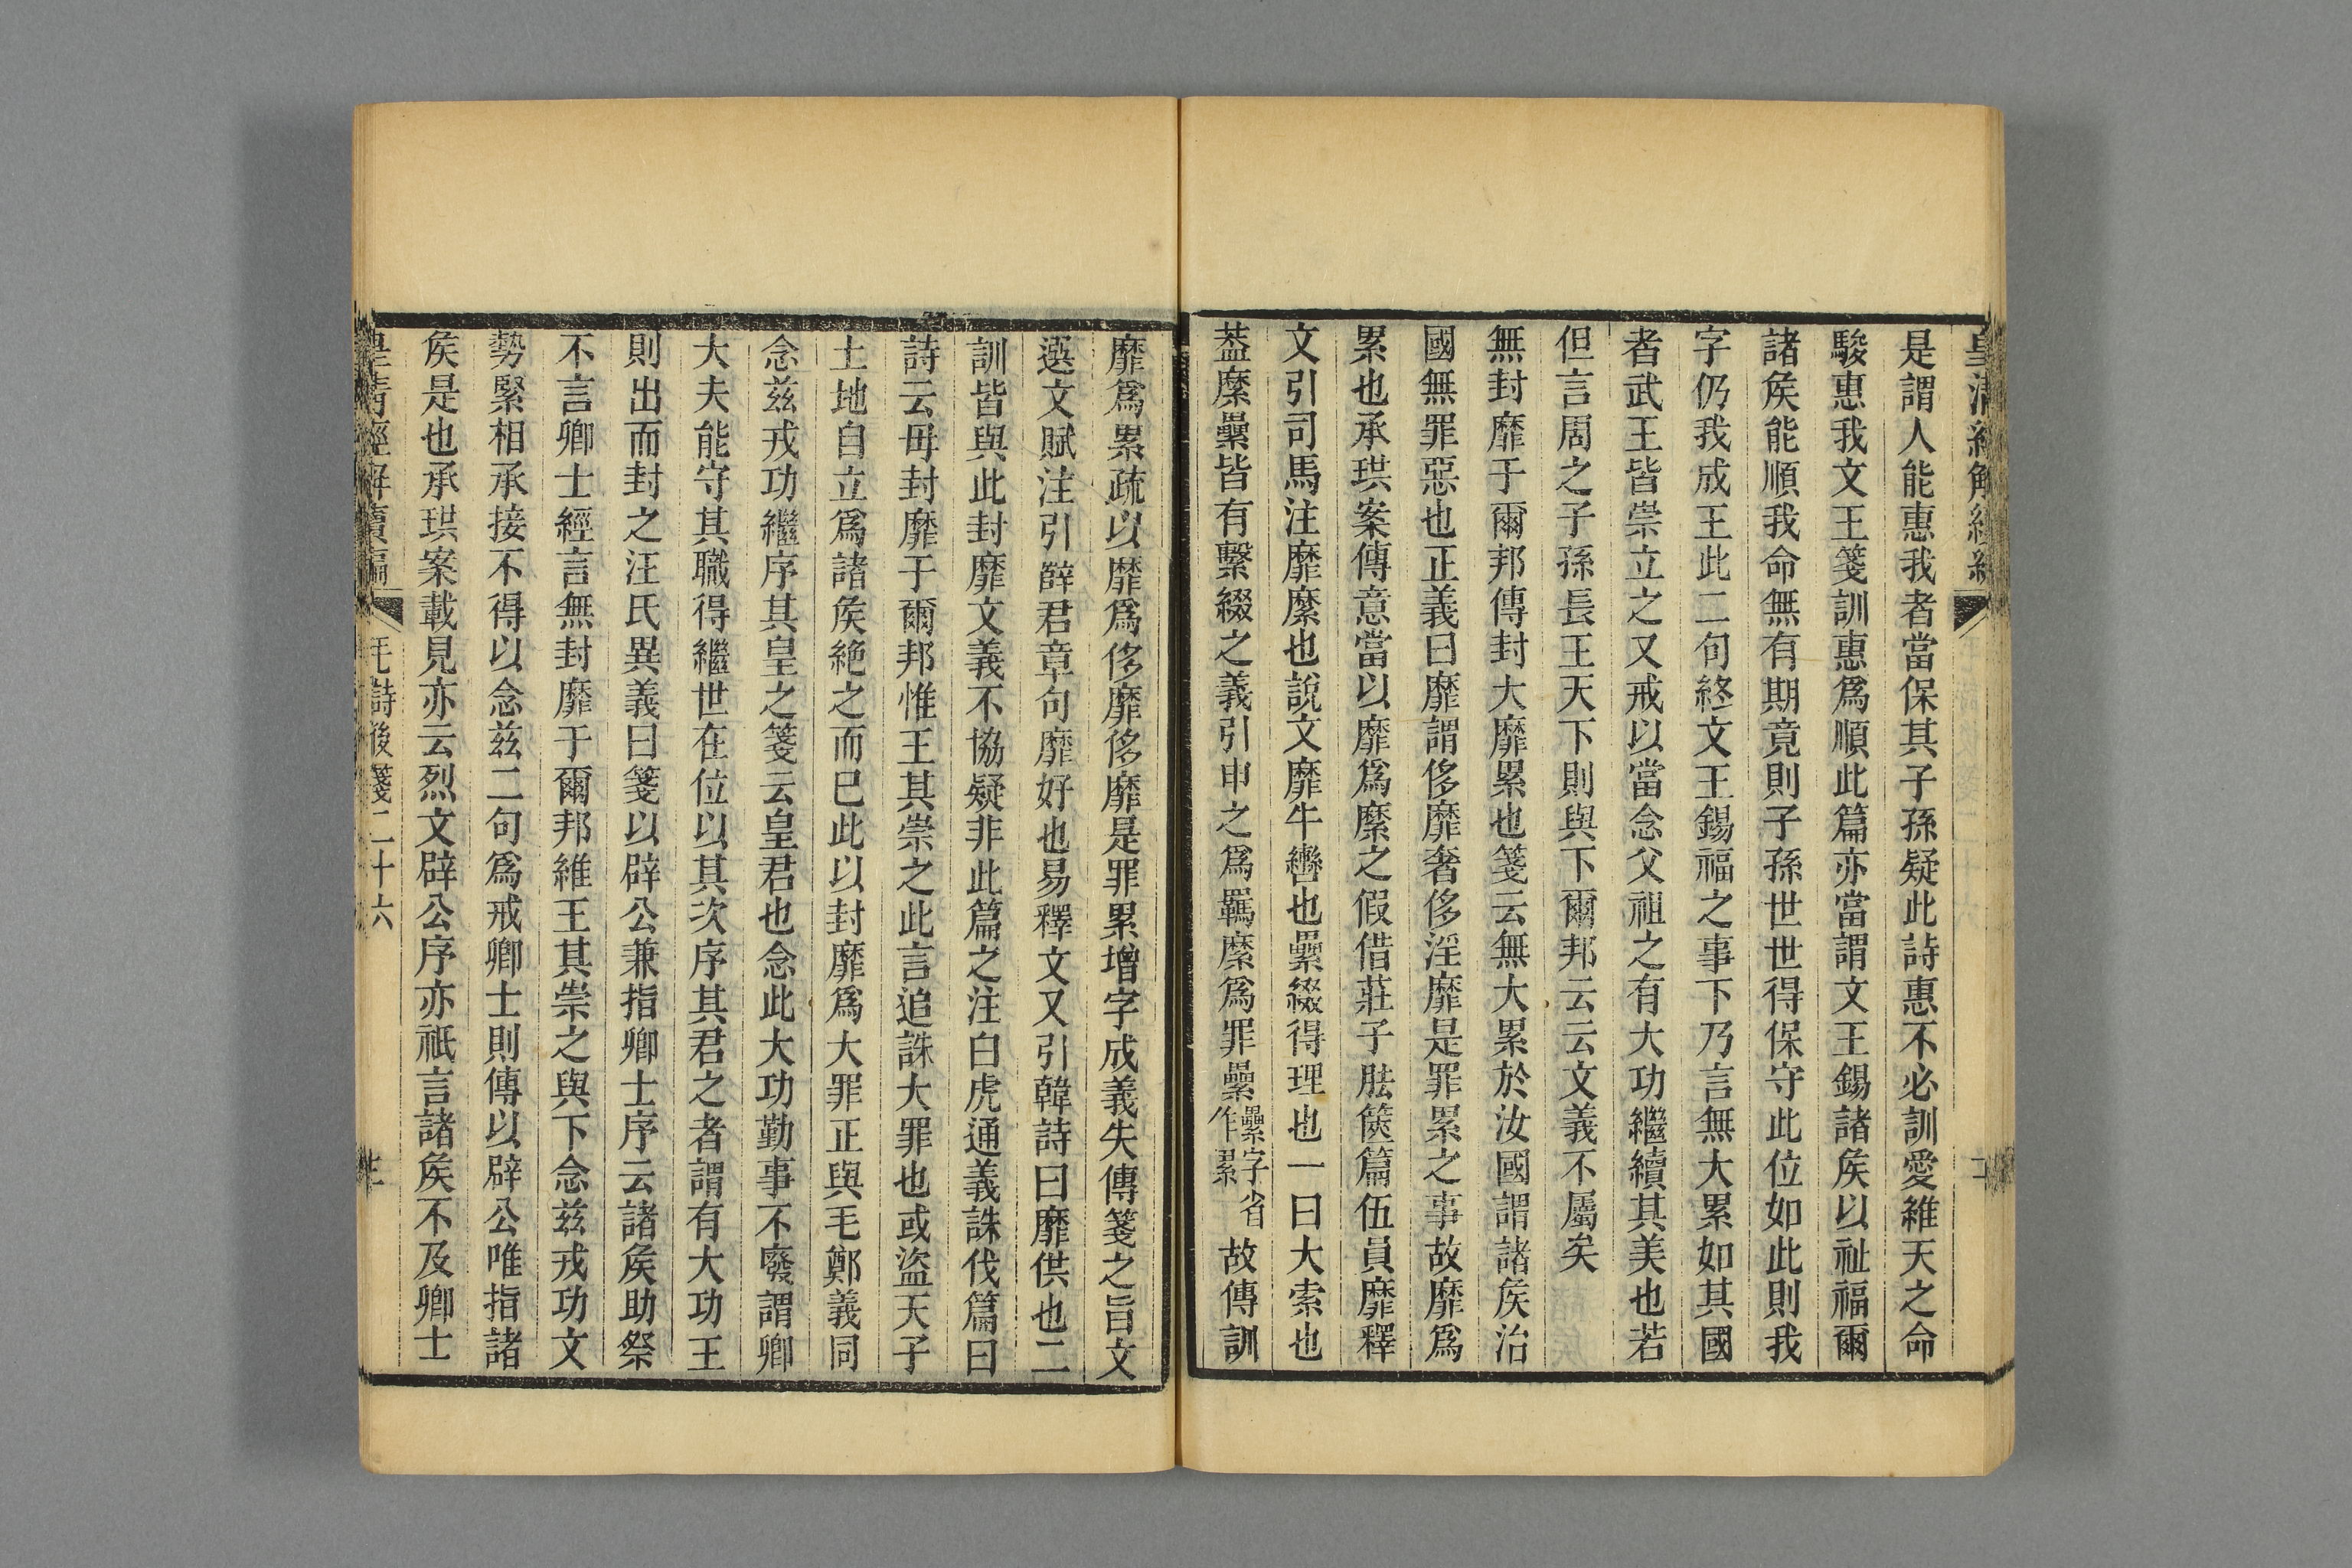 是謂人能惠我者當保其子孫疑此詩惠不必訓愛維天之命
駿惠我文王箋訓惠爲順此篇亦當謂文王錫諸矦以祉福爾
諸矦能順我命無有期竟則子孫世世得保守此位如此則我
字仍我成王此二句終文王錫福之事下乃言無大累如其國
者武王皆崇立之又戒以當念父祖之有大功繼續其美也若
但言周之子孫長王天下則與下爾邦云云文義不屬矣
無封靡于爾邦傳封大靡累也箋云無大累於汝國謂諸矦治
國無罪惡也正義曰靡謂侈靡奢侈淫靡是罪累之事故靡爲
累也承珙案傳意當以靡爲縻之假借莊子胠篋篇伍員靡釋
文引司馬注靡縻也說文縻牛轡也纍綴得理也一曰大索也
葢縻纍皆有繫綴之義引申之爲羈縻爲罪纍纍字省作累故傳訓
靡爲累疏以靡爲侈靡侈靡是罪累增字成義失傳箋之旨文
選文賦注引薛君章句靡好也易釋文又引韓詩曰靡供也二
訓皆與此封靡文義不協疑非此篇之注白虎通義誅伐篇曰
詩云毋封靡于爾邦惟王其崇之此言追誅大罪也或盜天子
土地自立爲諸矦絶之而已此以封靡爲大罪正與毛鄭義同
念兹戎功繼序其皇之箋云皇君也念此大功勤事不廢謂卿
大夫能守其職得繼世在位以其次序其君之者謂有大功王
則出而封之汪氏異義曰箋以辟公兼指卿士序云諸矦助祭
不言卿士經言無封靡于爾邦維王其崇之與下念兹戎功文
勢緊相承接不得以念兹二句爲戒卿士則傳以辟公唯指諸
矦是也承珙案載見亦云烈文辟公序亦祇言諸矦不及卿士
皇清經解續編 毛詩後箋二十六